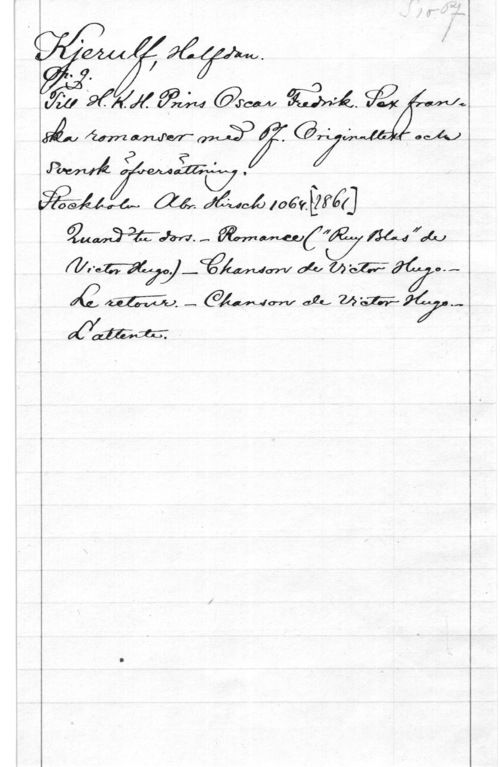 S1o Pf
Kjerulf, Halfdan.
Op. 9.
Till H.K.H. Prins Oscar Fredrik. Sex fran-
ska romanser med Pf. Originaltext och
svensk öfversättning.
Stockholm Abr. Hirsch 1064. [1861]
Quand tu dors. – Romance ("Ruy Blas" de
Victor Hugo.) – Chanson de Victor Hugo. –
Le retour. – Chanson de Victor Hugo –
L'attente.